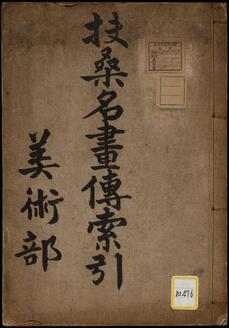 扶桑名畫傳索引
美術部